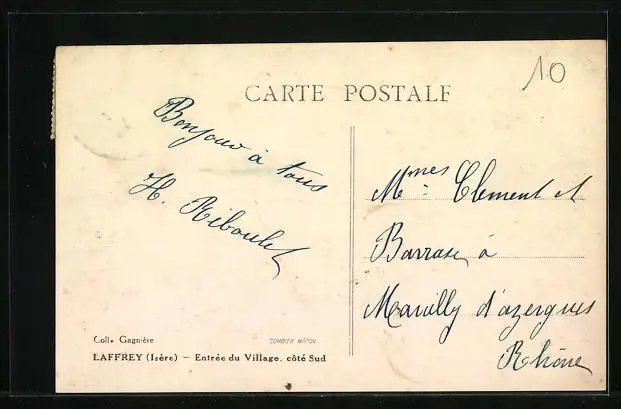 CARTE POSTALE
10
Bonjour à tous
H. Riboulet
Mmes Clement et
Barrase à
Marcilly d'azergues
Rhône
Coll. Gagnière
COMBIER MÂCON
LAFFREY (Isère) — Entrée du Village, côté Sud